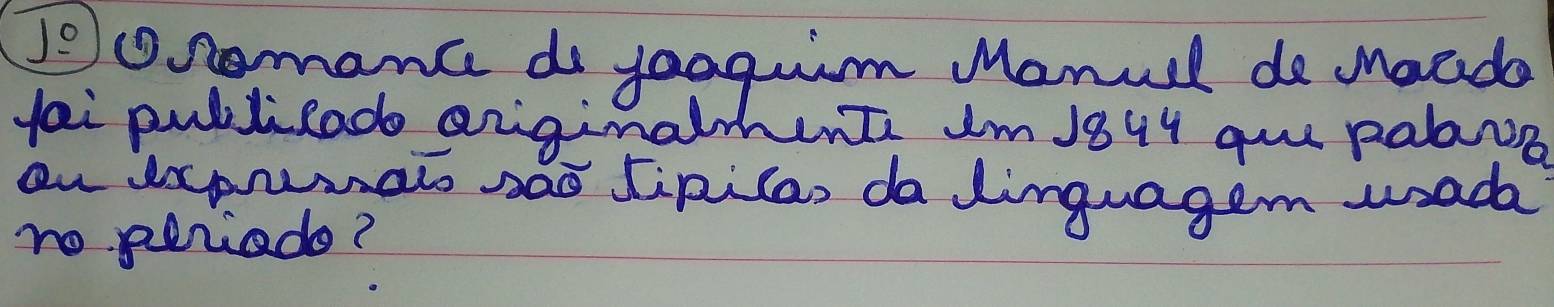 1º O romance de joaquim Manuel de Macedo
foi publicado originalmente em 1844 que palavra
ou expressaõs saõ tipicas da linguagem usada
no periodo?